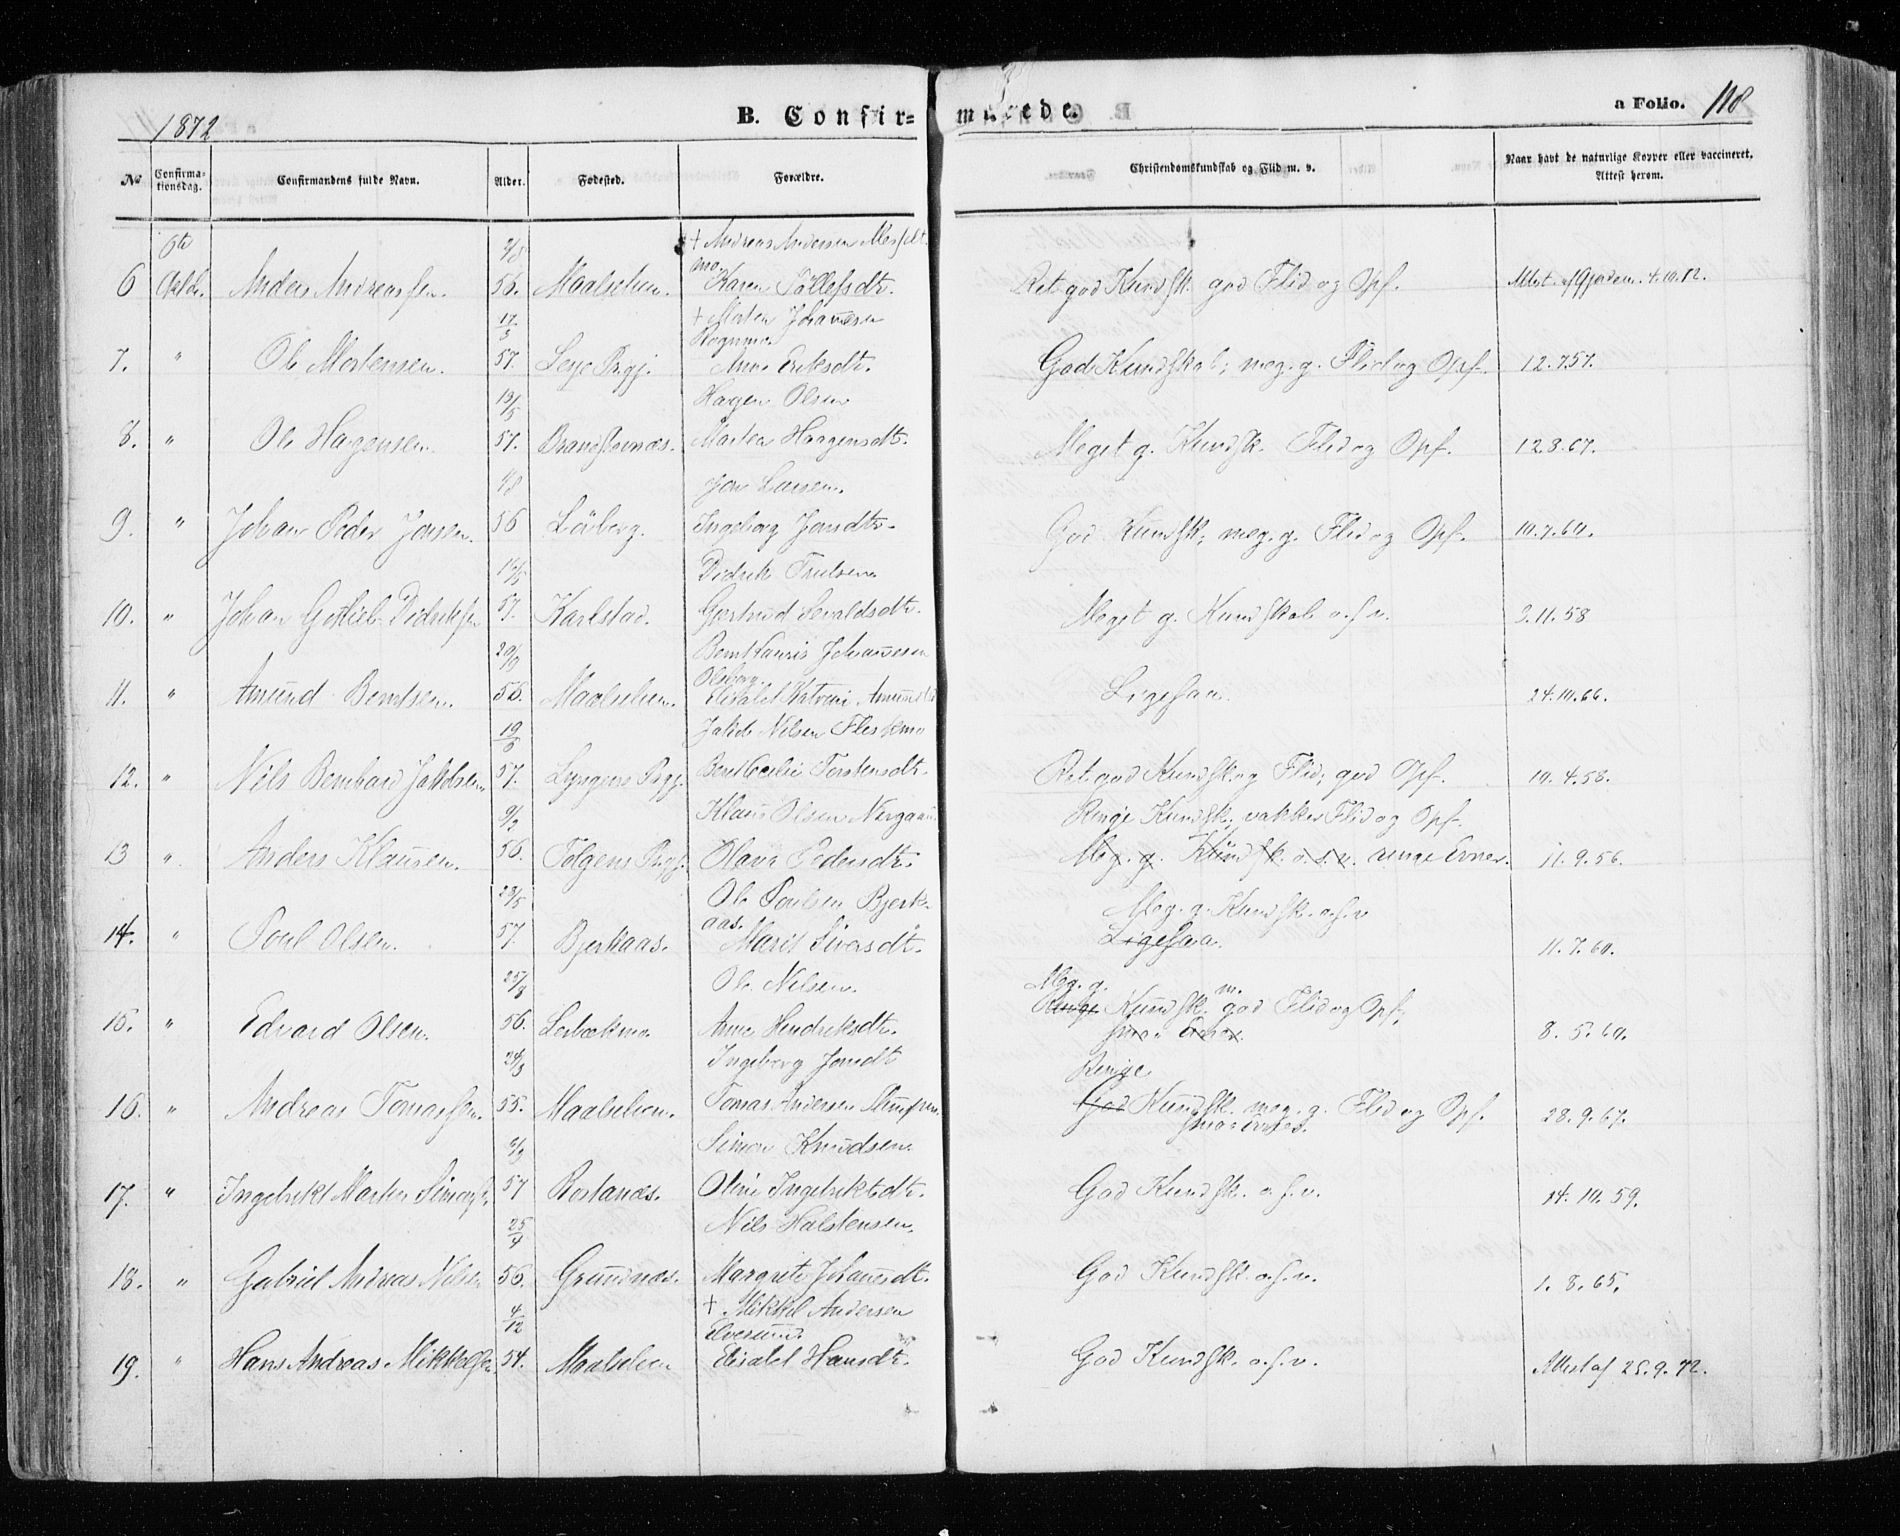 1872
B. Confirmerede.
a Folio. 118
No
Confirmationsdag.
Confirmandens fulde Navn.
Alder.
Fødested.
Forældre.
Christendomskundskab og Flid m. v.
Naar havt de naturlige Kopper eller vaccineret. Attest herom.
6te
+ Andreas Andersen
mo
6 Anders Andreassen. 56. Maalselven. Karen Tollefsdtr. Ret god Kundsk. god Flid og Opf. 4.10.72.
17/3 + Morten Johannesen
Rognmo
7. " Ole Mortensen. 57. Prgj. Anne Eriksdtr. God Kundskab; meg. g. Flid og Opf. 12.7.57.
13/5 Hagen Olsen
8. " Ole Hagensen. 57. Marten Haagensdtr. Meget g. Kundsk. Flid og Opf. 12.8.67.
Jon Larsen.
9. " Johan Peder Jonsen. 56 Ingeborg Jonsdtr. God Kundsk; meg. g. Flid og Opf. 10.7.60.
Didrik Trulsen
10. " Johan Didriksen 57. Karlstad. Gjertrud Meget g. Kundskab o.s.v. 3.11.58
20/9 Bernt Lauris Johannesen
Olsborg.
11. " Amund Berntsen. 56. Maalselven. Elisabet Ligesaa. 24.10.66.
Jakob Nilsen Fleskmo
12. " Nils Bernhard Jakobsen 57. Lyngens Prgj. Berit Cecilie Torstensdtr. Ret god Kundsk. og Flid; god Opf. 10.4.58.
9/2 Klaus Olsen Nergaard Ringe Kundsk; vakker Flid og Opf.
13 " Anders Klausen. 56. Tolgens Prgj. Olava Pedersdtr. Meg. g. Kundsk. o.s.v. ringe Evner. 11.9.56.
28/5 Ole Poulsen Bjerk-
aas. Meg. g. Kundsk. o.s.v
14. " Poul Olsen. 57. Bjerkaas. Marit Siversdtr. Ligesaa. 11.7.60.
25/8 Ole Nilsen. Meg. g. m.
15. " Edvard Olsen. 56. Anne Hendriksdtr. Ringe Kundsk. god Flid og Opf; 8.5.60.
smaa Evner.
Ingeborg Jonsdt Ringe
16. " Andreas Tomassen. 55. Maalselven. Tomas Andersen God Kundsk. meg. g. Flid og Opf. 28.9.67.
smaa Evner.
Simon Knudsen
17. " Ingebrikt Morten 57 Rostanæs. Oline Ingebriktsdtr. God Kundsk. o.s.v. 14.10.59.
25/4 Nils Halstensen.
18. " Gabriel Andreas Nilsen 56. Grundnæs. Margrete Johansdtr. God Kundsk. o.s.v. 1.8.65.
4/12 + Mikkel Andersen
Elvesund
19. " Hans Andreas Mikkelsen 54. Maalselven Elisabet Hansdtr. God Kundsk. o.s.v. Attest af 25.9.72.